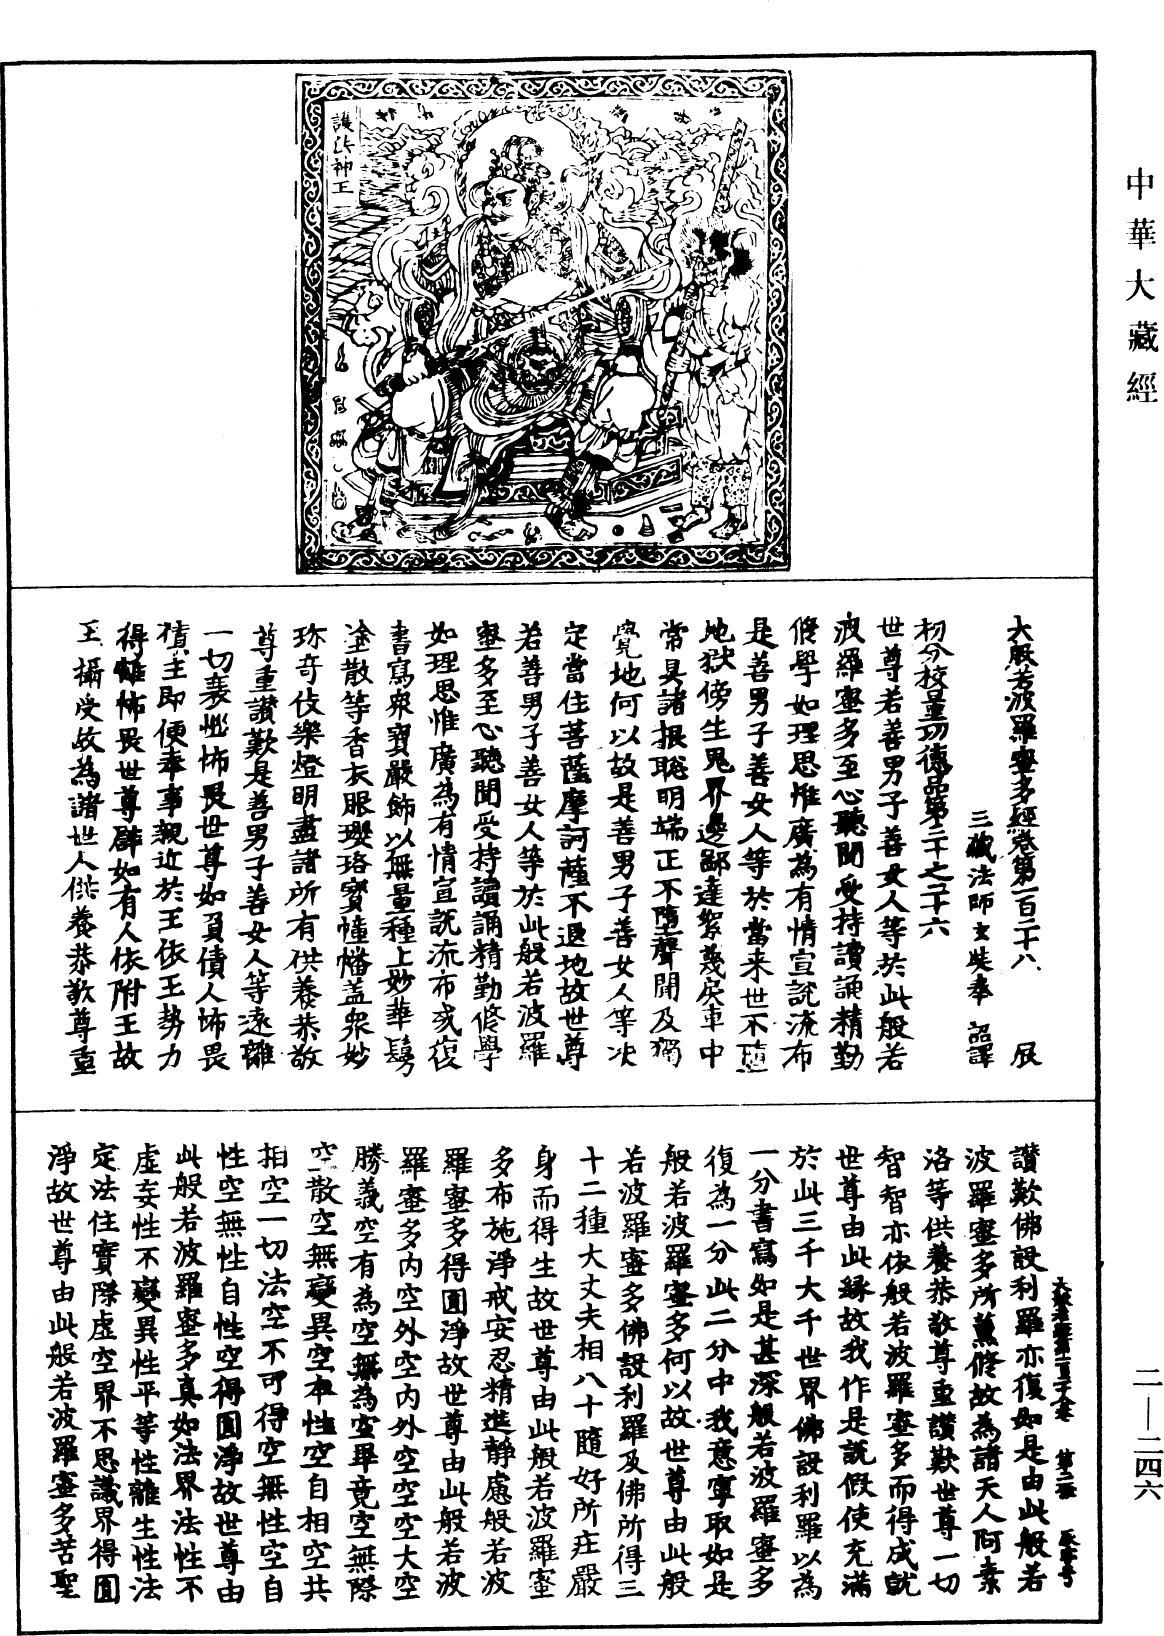 中華大藏經
二—二四六
護法神王
大般若波羅蜜多經卷第一百二十八 辰
三藏法師玄奘奉 詔譯
初分校量功德品第三十之二十六
世尊若善男子善女人等於此般若
波羅蜜多至心聽聞受持讀誦精勤
修學如理思惟廣為有情宣說流布
是善男子善女人等於當來世不墮
地獄傍生鬼界邊鄙達絮蔑戾車中
常具諸根聰明端正不墮聲聞及獨
覺地何以故是善男子善女人等決
定當住菩薩摩訶薩不退地故世尊
若善男子善女人等於此般若波羅
蜜多至心聽聞受持讀誦精勤修學
如理思惟廣為有情宣說流布或復
書寫眾寶嚴飾以無量種上妙華鬘
塗散等香衣服瓔珞寶幢幡蓋眾妙
珍奇伎樂燈明盡諸所有供養恭敬
尊重讚歎是善男子善女人等遠離
一切衰惱怖畏世尊如負債人怖畏
債主即便奉事親近於王依王勢力
得離怖畏世尊譬如有人依附王故
王攝受故為諸世人供養恭敬尊重
讚歎佛設利羅亦復如是由此般若
波羅蜜多所薰修故為諸天人阿素
洛等供養恭敬尊重讚歎世尊一切
智智亦依般若波羅蜜多而得成就
世尊由此緣故我作是說假使充滿
於此三千大千世界佛設利羅以為
一分書寫如是甚深般若波羅蜜多
復為一分此二分中我意寧取如是
般若波羅蜜多何以故世尊由此般
若波羅蜜多佛設利羅及佛所得三
十二種大丈夫相八十隨好所莊嚴
身而得生故世尊由此般若波羅蜜
多布施淨戒安忍精進靜慮般若波
羅蜜多得圓淨故世尊由此般若波
羅蜜多內空外空內外空空空大空
勝義空有為空無為空畢竟空無際
空散空無變異空本性空自相空共
相空一切法空不可得空無性空自
性空無性自性空得圓淨故世尊由
此般若波羅蜜多真如法界法性不
虛妄性不變異性平等性離生性法
定法住實際虛空界不思議界得圓
淨故世尊由此般若波羅蜜多苦聖